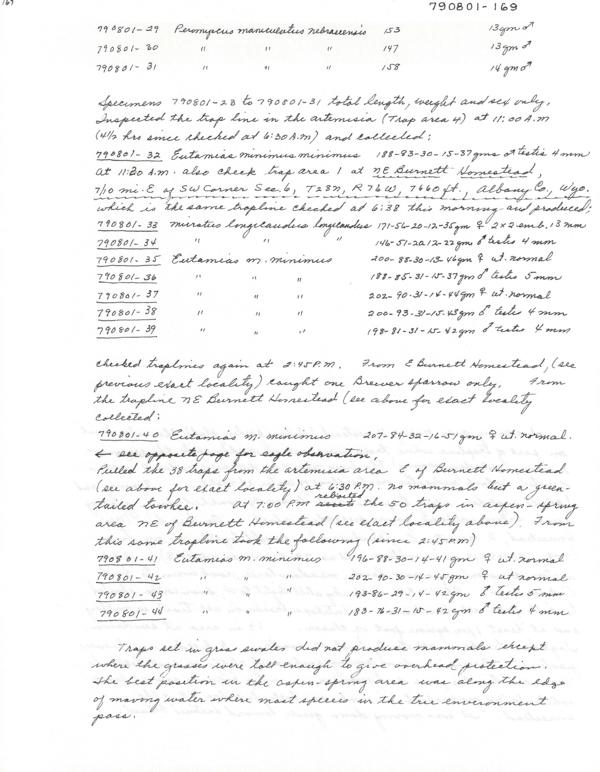 169
790801-169
790801-29 Peromyscus maniculatus nebrascensis 153 13gm ♂
790801-30 " " " 147 13gm ♂
790801-31 " " " 158 14gm ♂
Specimens 790801-28 to 790801-31 total length, weight and sex only.
Inspected the trap line in the artemisia (Trap area 4) at 11:00 A.M
(4½ hrs since checked at 6:30 A.M) and collected:
790801-32 Eutamias minimus minimus 188-93-30-15-37gms ♂ testis 4mm
At 11:20 A.M. also check trap area 1 at NE Burnett Homestead,
7/10 mi. E of SW Corner Sec. 6, T28N, R76W, 7660 ft., Albany Co., Wyo.
which is the same trapline checked at 6:38 this morning and produced:
790801-33 microtus longicaudus longicaudus 171-56-20-12-35gm ♀ 2x2 emb. 13mm
790801-34 " " " 146-51-20-12-22gms ♂ testis 4mm
790801-35 Eutamias m. minimus 200-88-30-13-46gm ♀ ut. normal
790801-36 " " " 188-85-31-15-37gm ♂ testis 5mm
790801-37 " " " 202-90-31-14-44gm ♀ ut. normal
790801-38 " " " 200-93-31-15-43gm ♂ testis 4mm
790801-39 " " " 198-81-31-15-42gm ♂ testis 4mm
checked traplines again at 2:45 P.M. From E Burnett Homestead, (see
previous exact locality) caught one Brewer sparrow only. From
the trapline NE Burnett Homestead (see above for exact locality
collected:
790801-40 Eutamias m. minimus 207-84-32-16-51gm ♀ ut. normal.
← see opposite page for eagle observation.
Pulled the 38 traps from the artemisia area E of Burnett Homestead
(see above for exact locality) at 6:30 P.M. no mammals but a green-
tailed towhee. At 7:00 P.M rebaited the 50 traps in aspen-spring
area NE of Burnett Homestead (see exact locality above). From
this same trapline took the following (since 2:45 P.M)
790801-41 Eutamias m. minimus 196-88-30-14-41gm ♀ ut. normal
790801-42 " " " 202-90-30-14-45gm ♀ ut normal
790801-43 " " " 193-86-29-14-42gm ♂ testis 5mm
790801-44 " " " 183-76-31-15-42gm ♂ testis 4mm
Traps set in grass swales did not produce mammals except
where the grasses were tall enough to give overhead protection.
The best position in the aspen-spring area was along the edge
of moving water where most species in the tree environment
pass.